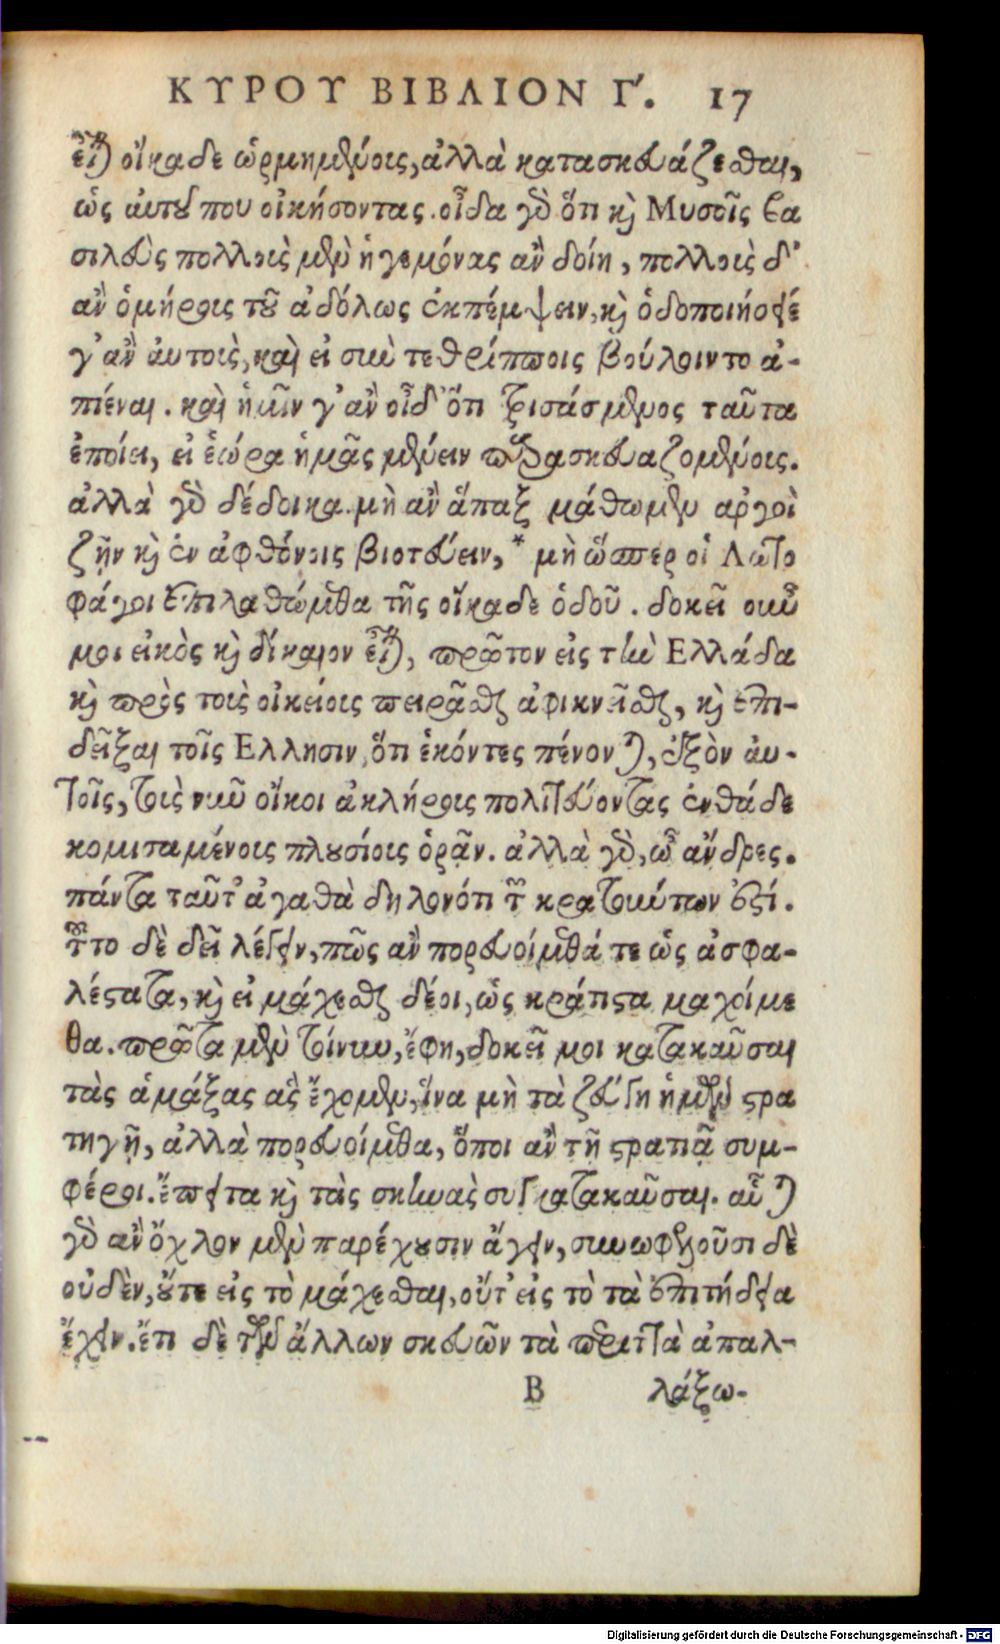 ΚΥΡΟΥ ΒΙΒΛΙΟΝ Γ΄. 17
εἶναι οἴκαδε ὡρμημένους, ἀλλὰ κατασκευάζεσθαι,
ὡς αὐτοῦ που οἰκήσοντας. οἶδα γὰρ ὅτι καὶ Μυσοῖς βα
σιλεὺς πολλοὺς μὲν ἡγεμόνας ἂν δοίη, πολλοὺς δ'
ἂν ὁμήρους τοῦ ἀδόλως ἐκπέμψειν, καὶ ὁδοποιήσειέ
γ' ἂν αὐτοῖς, καὶ εἰ σὺν τεθρίπποις βούλοιντο ἀ-
πιέναι. καὶ ἡμῖν γ' ἂν οἶδ' ὅτι τρισάσμενος ταῦτα
ἐποίει, εἰ ἑώρα ἡμᾶς μένειν παρασκευαζομένους.
ἀλλὰ γὰρ δέδοικα μὴ ἂν ἅπαξ μάθωμεν ἀργοὶ
ζῆν καὶ ἐν ἀφθόνοις βιοτεύειν, * μὴ ὥσπερ οἱ Λωτο
φάγοι ἐπιλαθώμεθα τῆς οἴκαδε ὁδοῦ. δοκεῖ οὖν
μοι εἰκὸς καὶ δίκαιον εἶναι, πρῶτον εἰς τὴν Ελλάδα
καὶ πρὸς τοὺς οἰκείους πειρᾶσθαι ἀφικνεῖσθαι, καὶ ἐπι-
δεῖξαι τοῖς Ελλησιν, ὅτι ἑκόντες πένονται, ἐξὸν αὐ-
τοῖς, τοὺς νῦν οἴκοι ἀκλήρους πολιτεύοντας ἐνθάδε
κομισαμένους πλουσίους ὁρᾶν. ἀλλὰ γὰρ, ὦ ἄνδρες.
πάντα ταῦτ' ἀγαθὰ δηλονότι τῶν κρατούντων ἐστί.
τοῦτο δὲ δεῖ λέγειν, πῶς ἂν πορευοίμεθά τε ὡς ἀσφα-
λέστατα, καὶ εἰ μάχεσθαι δέοι, ὡς κράτιστα μαχοίμε
θα. πρῶτα μὲν τοίνυν, ἔφη, δοκεῖ μοι κατακαῦσαι
τὰς ἁμάξας ἃς ἔχομεν, ἵνα μὴ τὰ ζεύγη ἡμῶν στρα
τηγῇ, ἀλλὰ πορευοίμεθα, ὅποι ἂν τῇ στρατιᾷ συμ-
φέροι. ἔπειτα καὶ τὰς σκηνὰς συγκατακαῦσαι. αὗται
γὰρ ἂν ὄχλον μὲν παρέχουσιν ἄγειν, συνωφελοῦσι δὲ
οὐδὲν, οὔτε εἰς τὸ μάχεσθαι, οὔτ' εἰς τὸ τὰ ἐπιτήδεια
ἔχειν. ἔτι δὲ τῶν ἄλλων σκευῶν τὰ περιττὰ ἀπαλ-
Β λάξω-
Digitalisierung gefördert durch die Deutsche Forschungsgemeinschaft - DFG